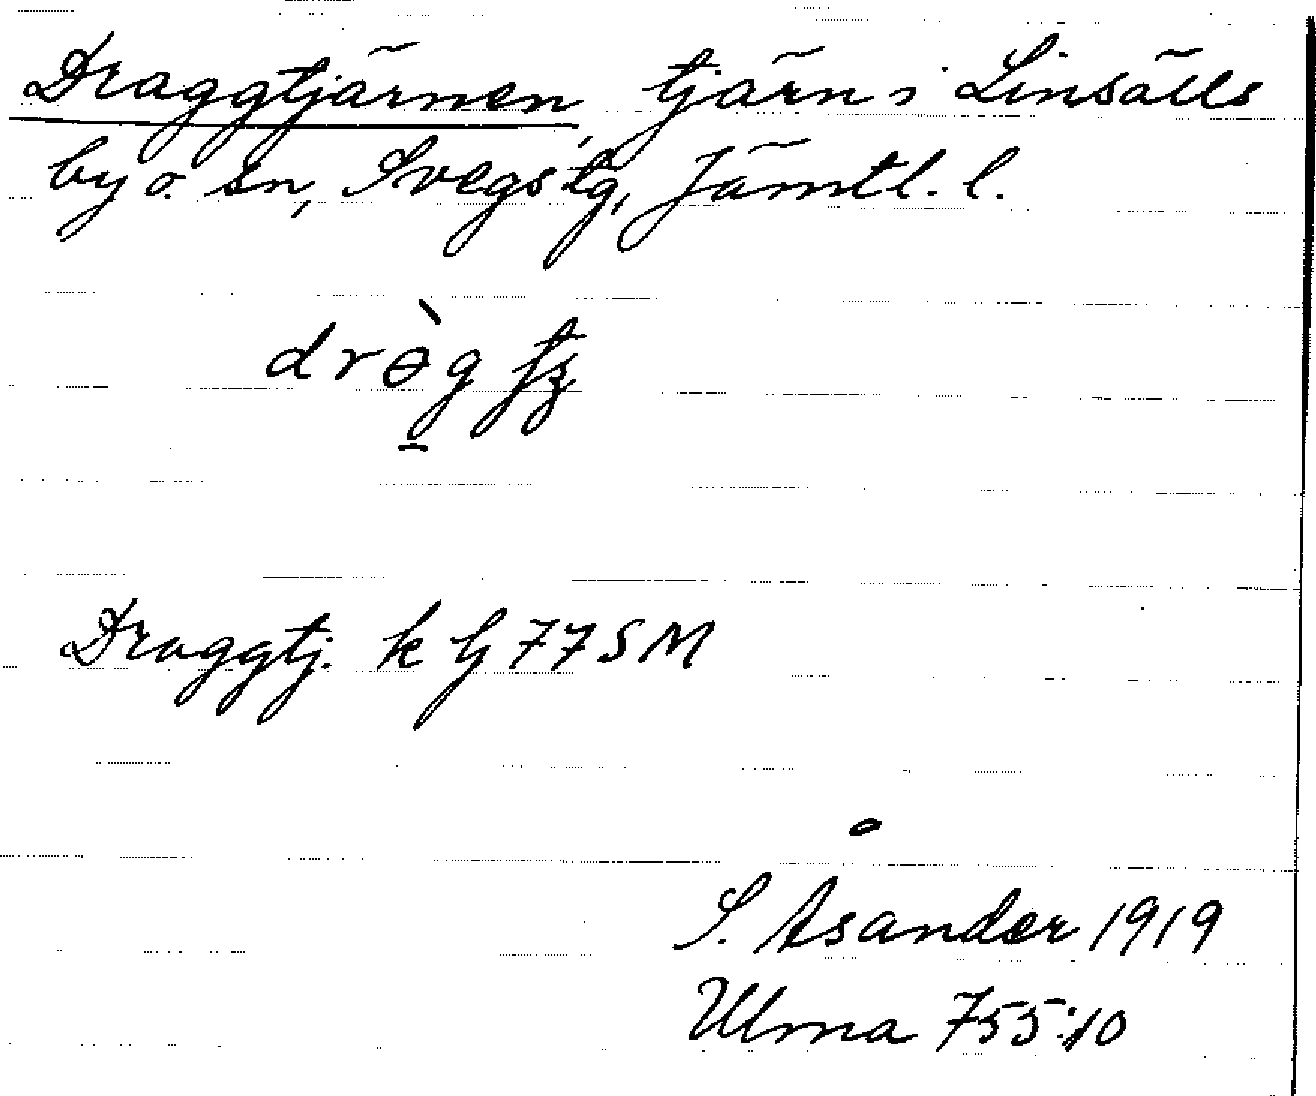 Draggtjärnen, tjärn i Linsälls
by o. sn, Svegs tg, Jämtl. l.
Draggtj. k G 77 S M
S. Åsander 1919
Ulma 755:10